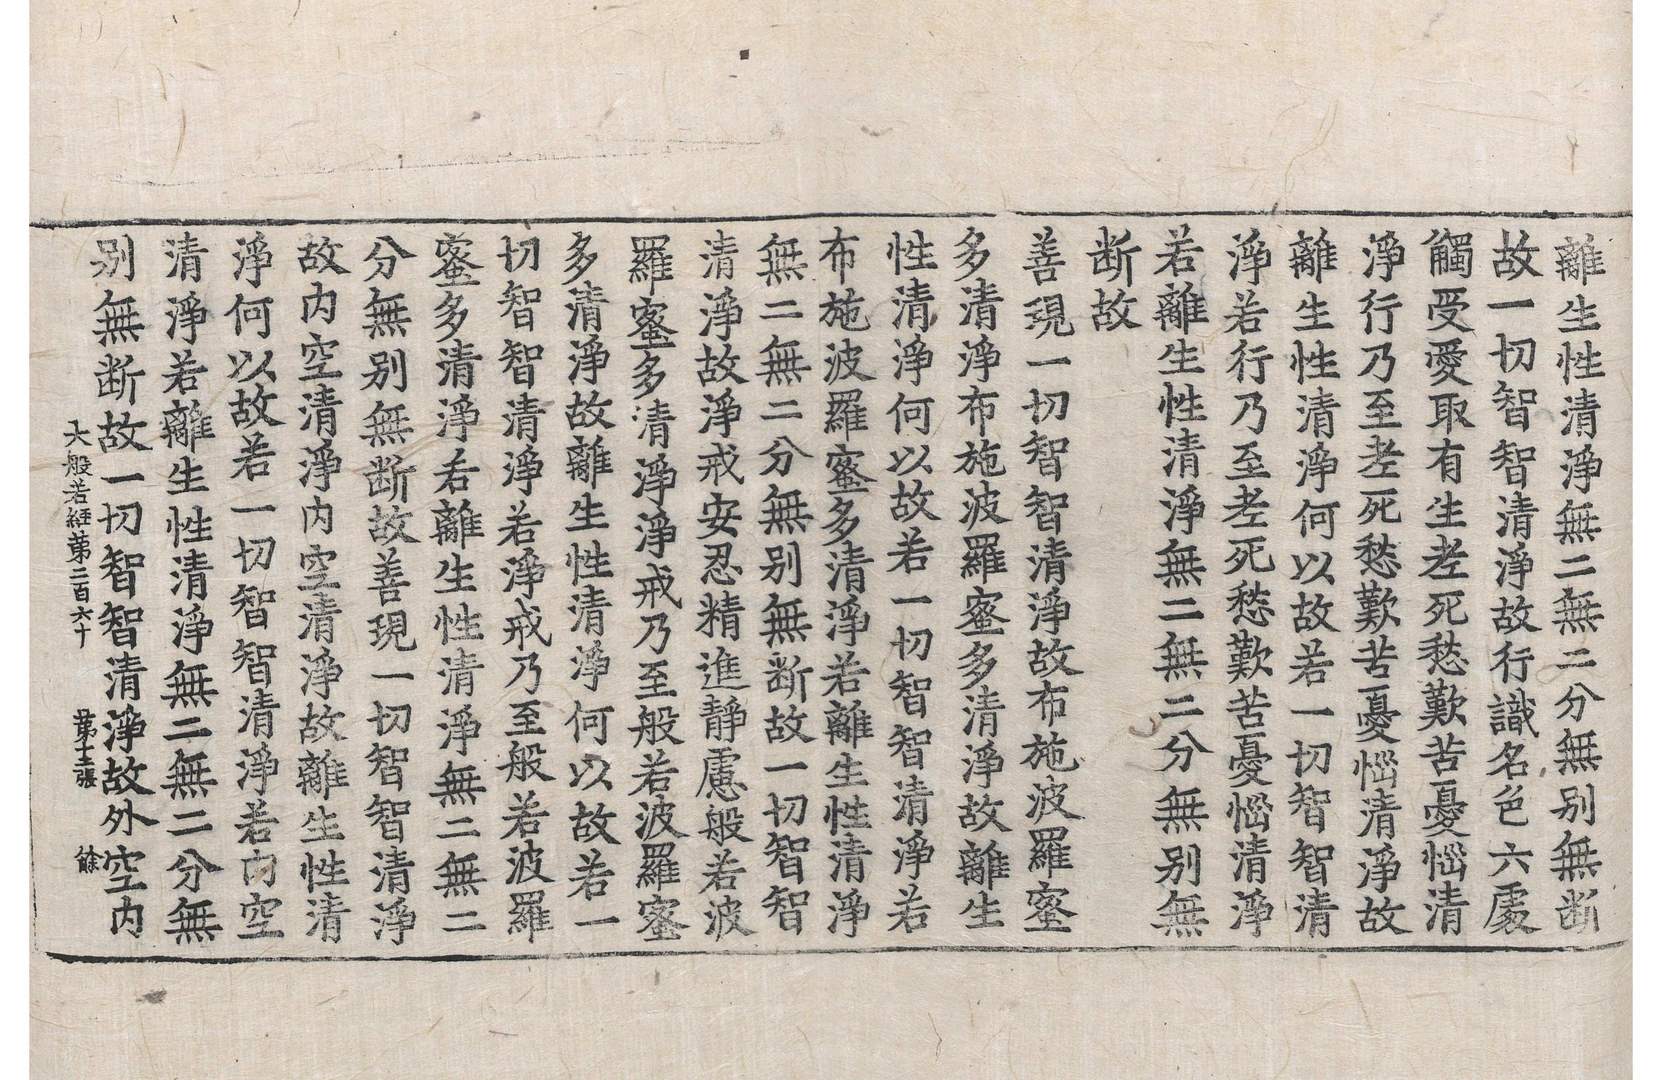 離生性清淨無二無二分無別無断
故一切智智清淨故行識名色六處
觸受愛取有生老死愁歎苦憂惱清
淨行乃至老死愁歎苦憂惱清淨故
離生性清淨何以故若一切智智清
淨若行乃至老死愁歎苦憂惱清淨
若離生性清淨無二無二分無別無
断故
善現一切智智清淨故布施波羅蜜
多清淨布施波羅蜜多清淨故離生
性清淨何以故若一切智智清淨若
布施波羅蜜多清淨若離生性清淨
無二無二分無別無断故一切智智
清淨故淨戒安忍精進靜慮般若波
羅蜜多清淨淨戒乃至般若波羅蜜
多清淨故離生性清淨何以故若一
切智智清淨若淨戒乃至般若波羅
蜜多清淨若離生性清淨無二無二
分無別無断故善現一切智智清淨
故内空清淨内空清淨故離生性清
淨何以故若一切智智清淨若内空
清淨若離生性清淨無二無二分無
別無断故一切智智清淨故外空内
大般若經第二百六十 第十二張 餘